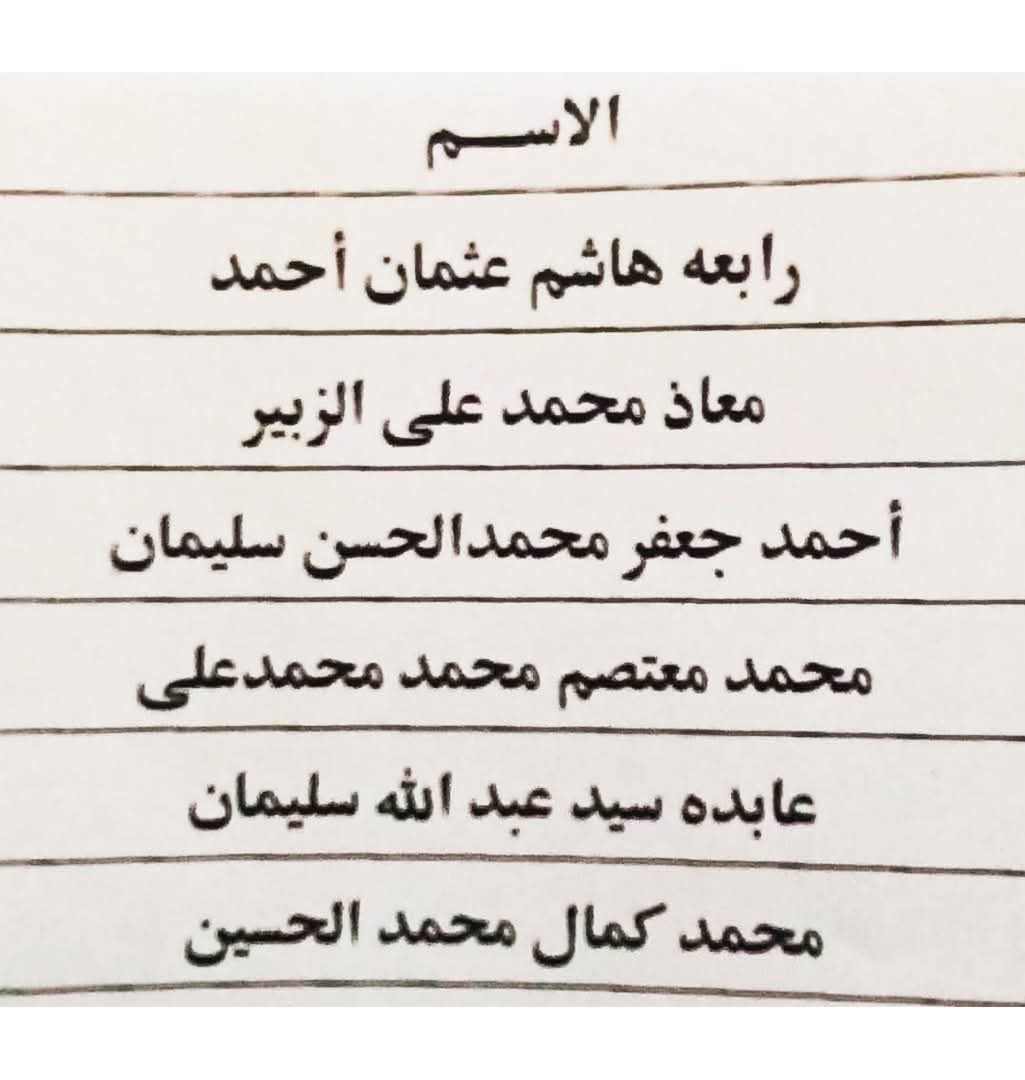 الاسم
رابعه هاشم عثمان أحمد
معاذ محمد على الزبير
أحمد جعفر محمدالحسن سليمان
محمد معتصم محمد محمدعلى
عابده سيد عبد الله سليمان
محمد كمال محمد الحسين